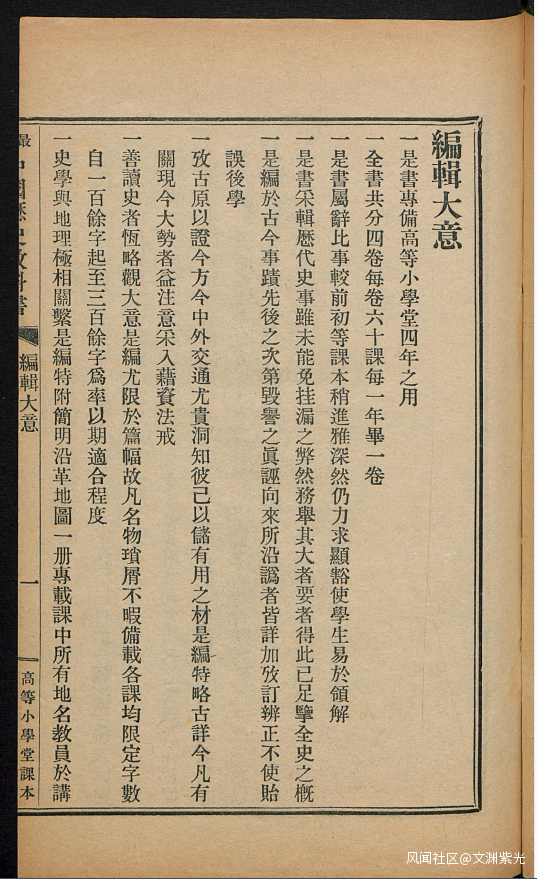 編輯大意
一是書專備高等小學堂四年之用
一全書共分四卷每卷六十課每一年畢一卷
一是書屬辭比事較前初等課本稍進雅深然仍力求顯豁使學生易於領解
一是書采輯歷代史事雖未能免挂漏之弊然務舉其大者要者得此已足擥全史之槪
一是編於古今事蹟先後之次第毀譽之眞誣向來所沿譌者皆詳加攷訂辨正不使貽
誤後學
一攷古原以證今方今中外交通尤貴洞知彼己以儲有用之材是編特略古詳今凡有
關現今大勢者益注意采入藉資法戒
一善讀史者恆略觀大意是編尤限於篇幅故凡名物瑣屑不暇備載各課均限定字數
自一百餘字起至三百餘字爲率以期適合程度
一史學與地理極相關繫是編特附簡明沿革地圖一册專載課中所有地名敎員於講
最中國歷史敎科書 編輯大意 一 高等小學堂課本
风闻社区@文洲紫光